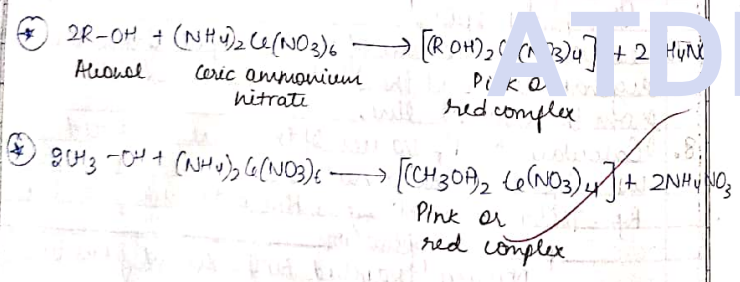 2R-OH + (NH4)2Ce(NO3)6 ⟶ [(ROH)2 Ce(NO3)4] + 2NH4NO3
Alcohol ceric ammonium Pink or
nitrate red complex
2CH3-OH + (NH4)2Ce(NO3)6 ⟶ [(CH3OH)2 Ce(NO3)4] + 2NH4NO3
Pink or
red complex
ATD